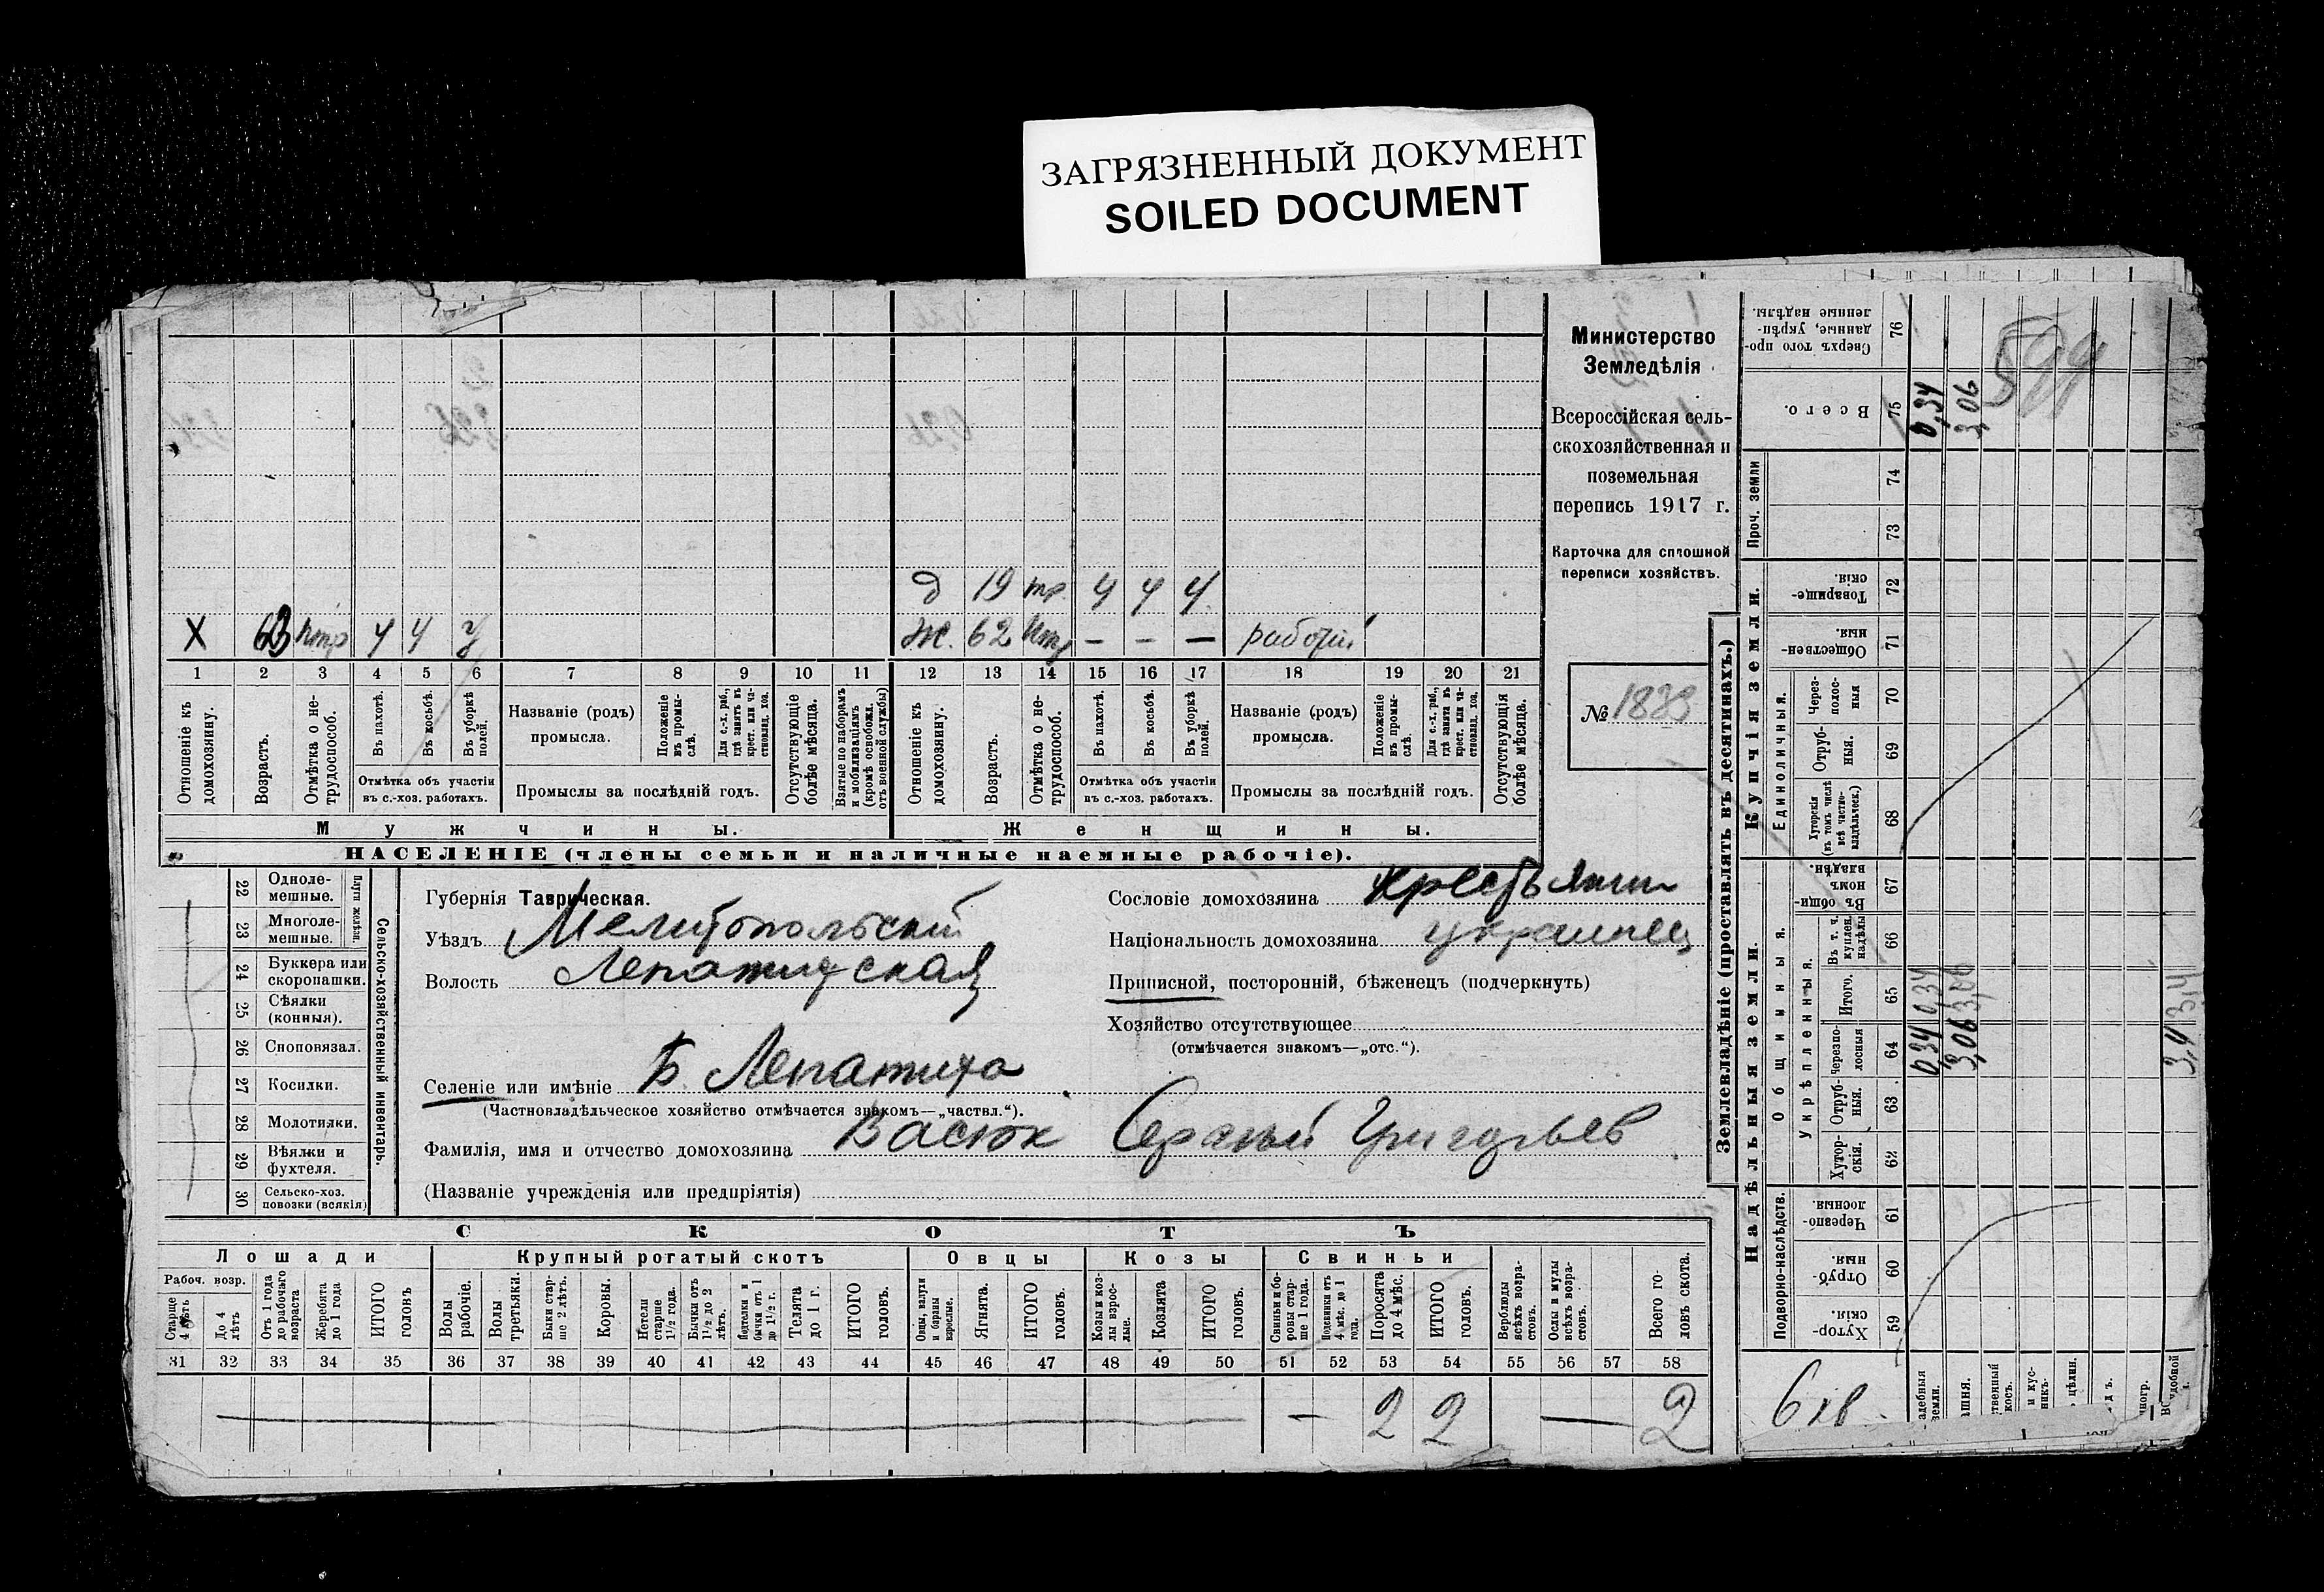 ЗАГРЯЗНЕННЫЙ ДОКУМЕНТ
SOILED DOCUMENT
Министерство
Земледѣлія
Всероссійская сель-
скохозяйственная и
поземельная
перепись 1917 г.
Карточка для сплошной
переписи хозяйствъ.
№ 1839
д 19 тр. ч ч ч
Х 63 нтр ч ч ч Ж. 62 нтр — — — рабочій
1 2 3 4 5 6 7 8 9 10 11 12 13 14 15 16 17 18 19 20 21
Отношеніе къ домохозяину.
Возрастъ.
Отмѣтка о не-трудоспособ.
Въ пахотѣ.
Въ косьбѣ.
Въ уборкѣ полей.
Отмѣтка объ участіи
въ с.-хоз. работахъ.
Названіе (родъ)
промысла.
Положеніе въ промы-слѣ.
Для с.-х. раб., гдѣ занятъ въ крест. или ча-ствовлад. хоз.
Промыслы за послѣдній годъ.
Отсутствующіе болѣе мѣсяца.
Взятые по наборамъ и мобилизаціямъ (кромѣ освобожд. отъ военной службы)
Отношеніе къ домохозяину.
Возрастъ.
Отмѣтка о не-трудоспособ.
Въ пахотѣ.
Въ косьбѣ.
Въ уборкѣ полей.
Отмѣтка объ участіи
въ с.-хоз. работахъ.
Названіе (родъ)
промысла.
Положеніе въ промы-слѣ.
Для с.-х. раб., гдѣ занята въ крест. или ча-ствовлад. хоз.
Промыслы за послѣдній годъ.
Отсутствующія болѣе мѣсяца.
Мужчины. Женщины.
НАСЕЛЕНІЕ (члены семьи и наличные наемные рабочіе).
Сельско-хозяйственный инвентарь.
Плуги желѣзн.
22 Одноле-мешные.
23 Многоле-мешные.
24 Буккера или скоропашки.
25 Сѣялки (конныя).
26 Сноповязал.
27 Косилки.
28 Молотилки.
29 Вѣялки и фухтеля.
30 Сельско-хоз. повозки (всякія)
Губернія Таврическая.
Уѣздъ Мелитопольскій
Волость Лепатихская
Селеніе или имѣніе Б. Лепатиха
(Частновладѣльческое хозяйство отмѣчается знакомъ—„частвл.“).
Фамилія, имя и отчество домохозяина Васюк Сергѣй Григорьев
(Названіе учрежденія или предпріятія)
Сословіе домохозяина крестьянин
Національность домохозяина украинец
Приписной, посторонній, бѣженецъ (подчеркнуть)
Хозяйство отсутствующее
(отмѣчается знакомъ—„отс.“).
СКОТЪ
Лошади Крупный рогатый скотъ Овцы Козы Свиньи
Рабоч. возр.
Старше 4 лѣтъ
До 4 лѣтъ
Отъ 1 года до рабочаго возраста
Жеребята до 1 года
ИТОГО головъ
Волы рабочіе.
Волы третьяки.
Быки стар-ше 2 лѣтъ.
Коровы.
Нетели старше 1½ года.
Бычки отъ 1½ до 2 лѣтъ.
Подтелки и бычки отъ 1 до 1½ г.
Телята до 1 г.
ИТОГО головъ.
Овцы, валухи и бараны взрослые.
Ягнята.
ИТОГО головъ.
Козы и коз-лы взрос-лые.
Козлята
ИТОГО головъ.
Свиньи и бо-ровы стар-ше 1 года.
Подсвинки отъ 4 мѣс. до 1 года.
Поросята до 4 мѣс.
ИТОГО головъ.
Верблюды всѣхъ возра-стовъ.
Ослы и мулы всѣхъ возра-стовъ.
Всего го-ловъ скота.
31 32 33 34 35 36 37 38 39 40 41 42 43 44 45 46 47 48 49 50 51 52 53 54 55 56 57 58
— 2 2 — 2
Землевладѣніе (проставлять въ десятинахъ.)
Купчія земли.
Надѣльныя земли.
Сверхъ того про-данные, укрѣп-ленные надѣлы. 76
Всего. 75 0,34 3,06
599
Проч. земли 74 73
Товарище-скія. 72
Обществен-ныя. 71
Единоличныя.
Через-полос-ныя 70
Отруб-ныя. 69
Хуторскія (въ томъ числѣ всѣ частно-владѣльческ.) 68
Въ общин-номъ владѣн. 67
Общинныя.
Укрѣпленныя.
Въ т. ч. куплен. надѣлы 66
Итого. 65 0,34 3,06 3,4
Черезпо-лосныя 64 0,34 3,06 3,4
Отруб-ныя. 63
Хутор-скія. 62
Подворно-наслѣдств.
Черезпо-лосныя. 61
Отруб-ныя. 60
Хутор-скія. 59
6 кв